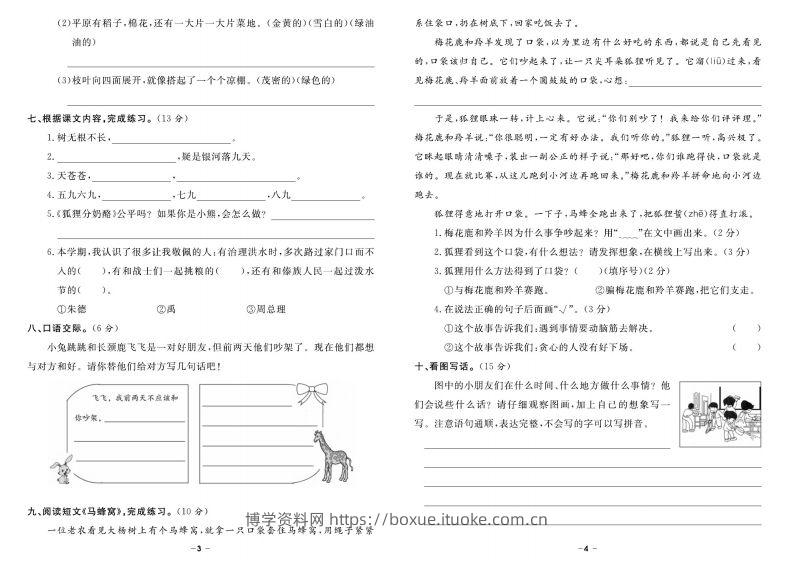 (2)平原有稻子,棉花,还有一大片一大片菜地。(金黄的)(雪白的)(绿油
油的)
(3)枝叶向四面展开,就像搭起了一个个凉棚。(茂密的)(绿色的)
七、根据课文内容,完成练习。(13 分)
1.树无根不长,____________。
2.____________,疑是银河落九天。
3.天苍苍,____________,____________。
4.五九六九,____________,七九____________,八九____________。
5.《狐狸分奶酪》公平吗?如果你是小熊,会怎么做?____________
6.本学期,我认识了很多让我敬佩的人:有治理洪水时,多次路过家门口而不
入的(  ),有和战士们一起挑粮的(  ),还有和傣族人民一起过泼水
节的(  )。
①朱德 ②禹 ③周总理
八、口语交际。(6 分)
小兔跳跳和长颈鹿飞飞是一对好朋友,但前两天他们吵架了。现在他们都想
与对方和好。请你替他们给对方写几句话吧!
飞飞,我前两天不应该和
你吵架。
九、阅读短文《马蜂窝》,完成练习。(10 分)
一位老农看见大杨树上有个马蜂窝,就拿一只口袋套住马蜂窝,用绳子紧紧
–3–
系住袋口,扔在树底下,回家吃饭去了。
梅花鹿和羚羊发现了口袋,以为里边有什么好吃的东西,都说是自己先看见
的,口袋该归自己。它们吵起来了,让一只尖耳朵狐狸听见了。它溜(liū)过来,看
见梅花鹿、羚羊面前放着一个圆鼓鼓的口袋,心想:____________
于是,狐狸眼珠一转,计上心来。它说:“你们别吵了!我来给你们评评理。”
梅花鹿和羚羊说:“你很聪明,一定有好办法。我们听你的。”狐狸一听,高兴极了。
它眯起眼睛清清嗓子,装出一副公正的样子说:“那好吧,你们谁跑得快,口袋就是
谁的。现在就比赛,从这儿跑到小河边再跑回来。”梅花鹿和羚羊拼命地向小河边
跑去。
狐狸得意地打开口袋。一下子,马蜂全跑出来了,把狐狸蜇(zhē)得直打滚。
1.梅花鹿和羚羊因为什么事争吵起来?用“﹏﹏”在文中画出来。(2 分)
2.狐狸看到这个口袋,有什么想法?请发挥想象,在横线上写出来。(3 分)
3.狐狸用什么方法得到了口袋?(  )(填序号)(2 分)
①与梅花鹿和羚羊赛跑。 ②骗梅花鹿和羚羊赛跑,把它们支走。
4.在说法正确的句子后面画“√”。(3 分)
①这个故事告诉我们:遇到事情要动脑筋去解决。 (  )
②这个故事告诉我们:贪心的人没有好下场。 (  )
十、看图写话。(15 分)
图中的小朋友们在什么时间、什么地方做什么事情?他
们会说些什么话?请仔细观察图画,加上自己的想象写一
写。注意语句通顺,表达完整,不会写的字可以写拼音。
–4–
博学资料网 https://boxue.ituoke.com.cn